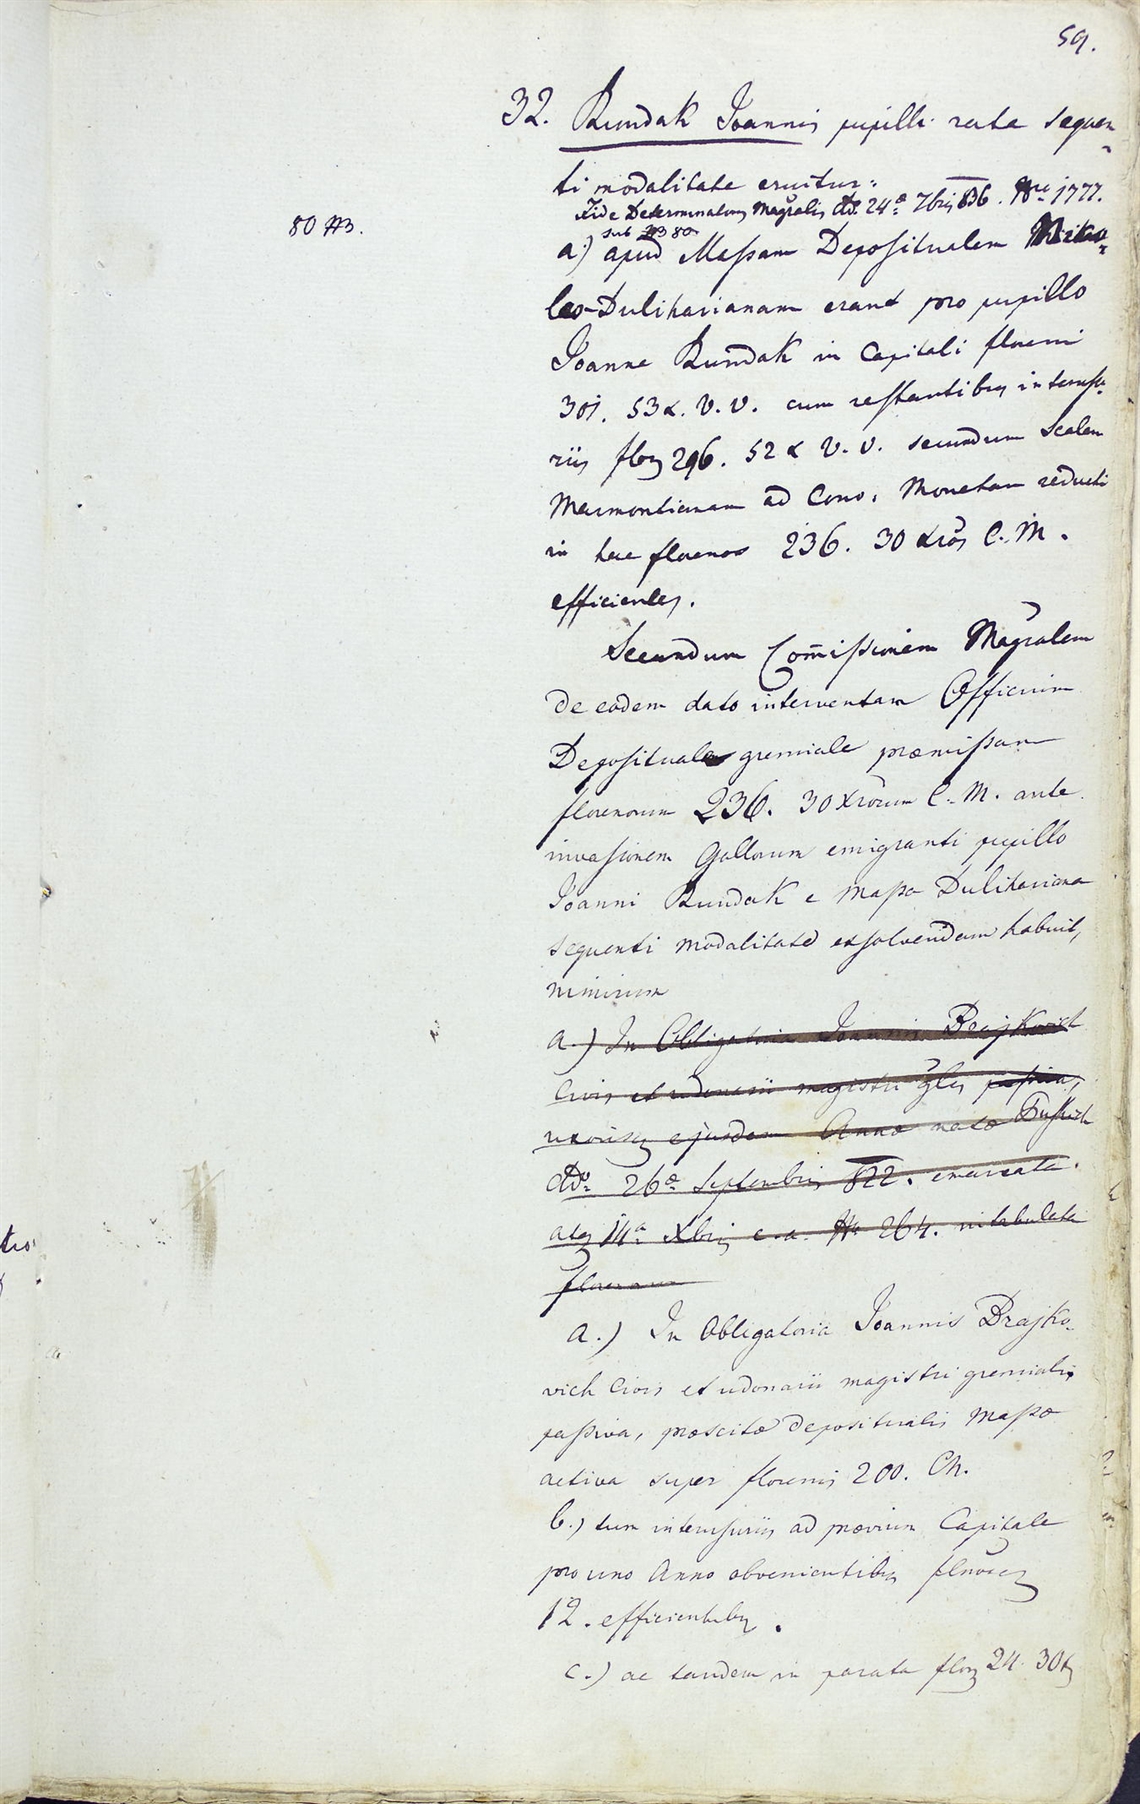 59.
32. Bundak Joannis pupilli rata sequen-
ti modalitate eruitur:
Vide Determinationem Magralem ddo 24a 7bris 836. Nro 1777.
sub 80
80
a.) apud Massam Depositualem
leo-Duliharianam erant pro pupillo
Joanne Bundak in Capitali floreni
301. 53 x. V. V. cum restantibus interusu-
riis flor 296. 52 x V. V. secundum Scalam
ad Conv. Monetam reducti
in hac florenos 236. 30 xros C. M.
efficientes.
Secundum Comissionem Magralem
de eodem dato interventam Officium
Depositualem gremiale præmissam
florenorum 236. 30 Xrorum C. M. ante
invasionem Gallorum emigranti pupillo
Joanni Bundak e Massa Dulihariana
sequenti modalitate exsolvendam habuit,
nimirum
a.) In Obligatoria Joannis Brajkovich
Civis et udonarii magistri glis passiva,
uxorisq ejusdem Annæ natæ
ddo 26a Septembris 822. emanata
atq 14a Xbris e. a. No 264. intabulata
florenorum
a.) In Obligatoria Joannis Brajko-
vich Civis et udonarii magistri gremialis
passiva, præscitæ depositualis Massæ
activa super florenis 200. Cm.
b.) tum interusuriis ad prævium Capitale
pro uno Anno obvenientibus
12. efficientibus.
c.) ac tandem in parata flor 24. 30